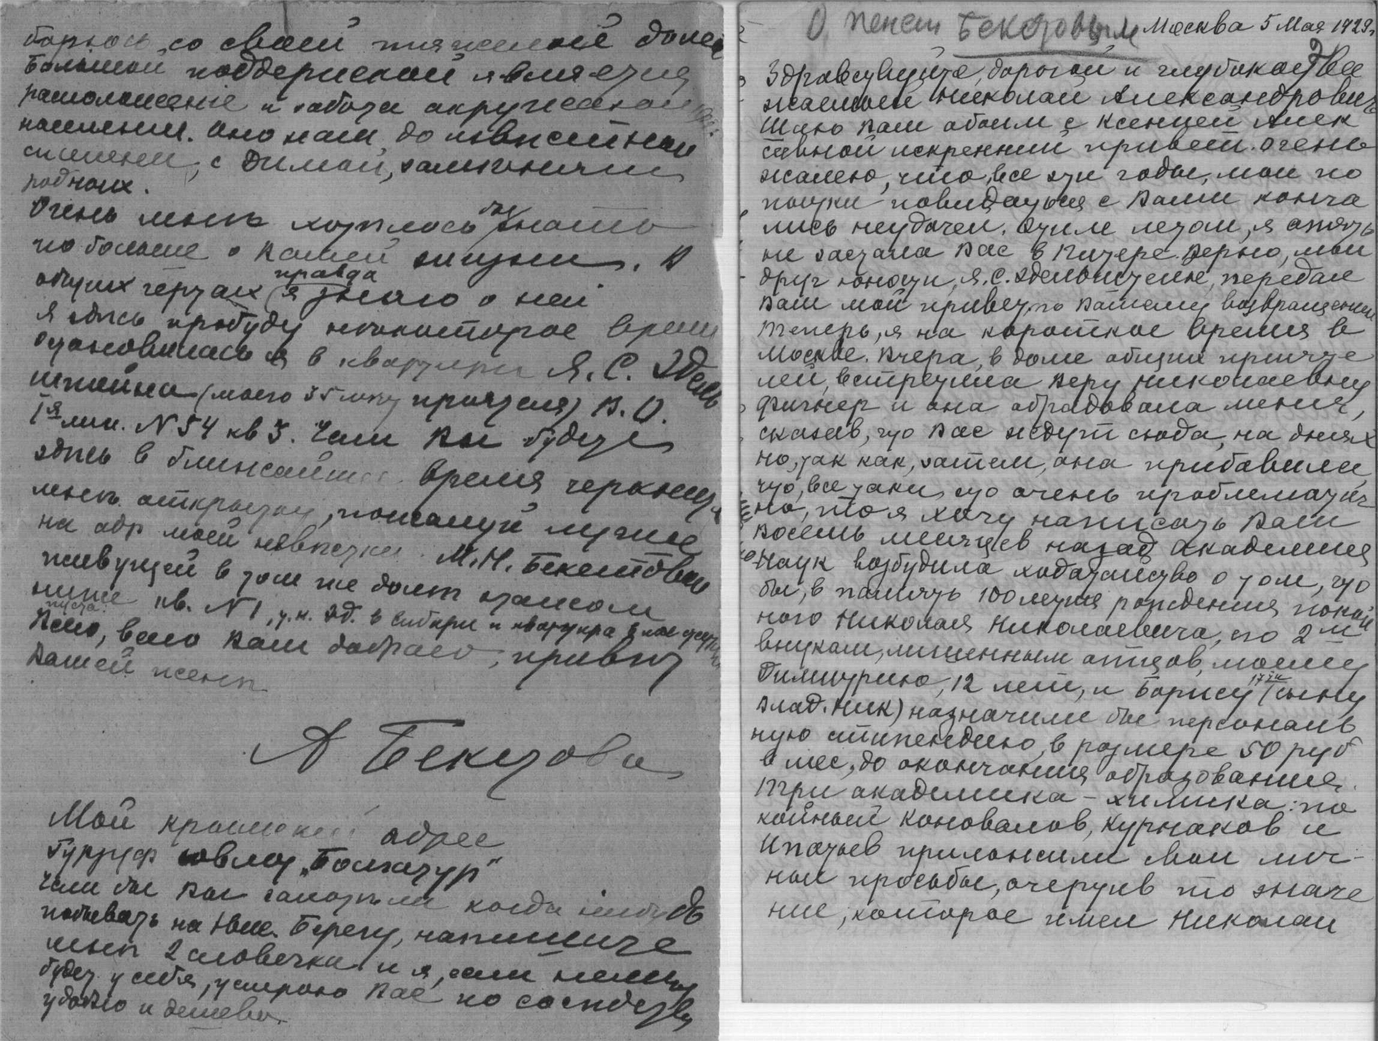 борюсь со своей тяжелой долей
Большой поддержкой является
расположенiе и забота окружающаго
населенiя. Оно нам, до известной
степени, с Димой, заменили
родных.
Очень мнѣ хотѣлось бы знать
по больше о Вашей жизни. В
общих чертах я правда знаю о ней
Я здѣсь пробуду некоторое время
Остановилась я в квартире Я. С. Эдель
штейна (моего 35 лету приятеля) В. О.
1ая лин. N 54 кв 3. Чем Вы будете
здѣсь в ближайшее время черкните
мнѣ открытку, пожалуй лучше
на адр моей невѣстки М. Н. Бекетовой
живущей в том же доме этажом
ниже кв. N 1, т. к. Эд. в Сибири и квартира пуста.
Всего, всего Вам добраго, привѣт
Вашей женѣ
А Бекетова
Мой крымский адрес
Гурзуф
Если бы Вы захотѣли когда нибудь
побывать на Юж. Берегу, напишите
мнѣ 2 словечка и я, если
буду у себя, устрою Вас по соседству
удобно и дешево.
О пенсии Бекетовым
Москва 5 Мая 1929г.
Здравствуйте, дорогой и глубокоува
жаемый Николай Александрович
Шлю Вам обоим с Ксенией Алек
сеевной искренний привет. Очень
жалею, что, все эти годы, мои по
пытки повидаться с Вами конча
лись неудачей. Этим летом, я опять
не застала Вас в Питере. Верно, мой
друг юности, Я. С. Эдельштейн, передал
Вам мой привет по Вашему возвращении
Теперь, я на короткое время в
Москве. Вчера, в доме общих прияте
лей, встретила Веру Николаевну
Фигнер и она обрадовала меня,
сказав, что Вас ждут сюда, на днях
но, так как, затем, она прибавила
что, все таки, это очень проблематич
но, то я хочу написать Вам
Восемь месяцев назад Академия
Наук возбудила ходатайство о том, что
бы, в память 100 летия рождения покой
ного Николая Николаевича, его 2м
внукам, лишенным отцов, моему
Димитрию, 12 лет, и Борису 17 ти (сыну
Влад. Ник) назначили бы персональ
ную стипендию, в размере 50 руб
в мес, до окончания образования.
Три академика – химика: по
койный Коновалов, Курнаков и
Ипатьев приложили свои лич-
ныя просьбы, очертив то значе
ние, которое имел Николай